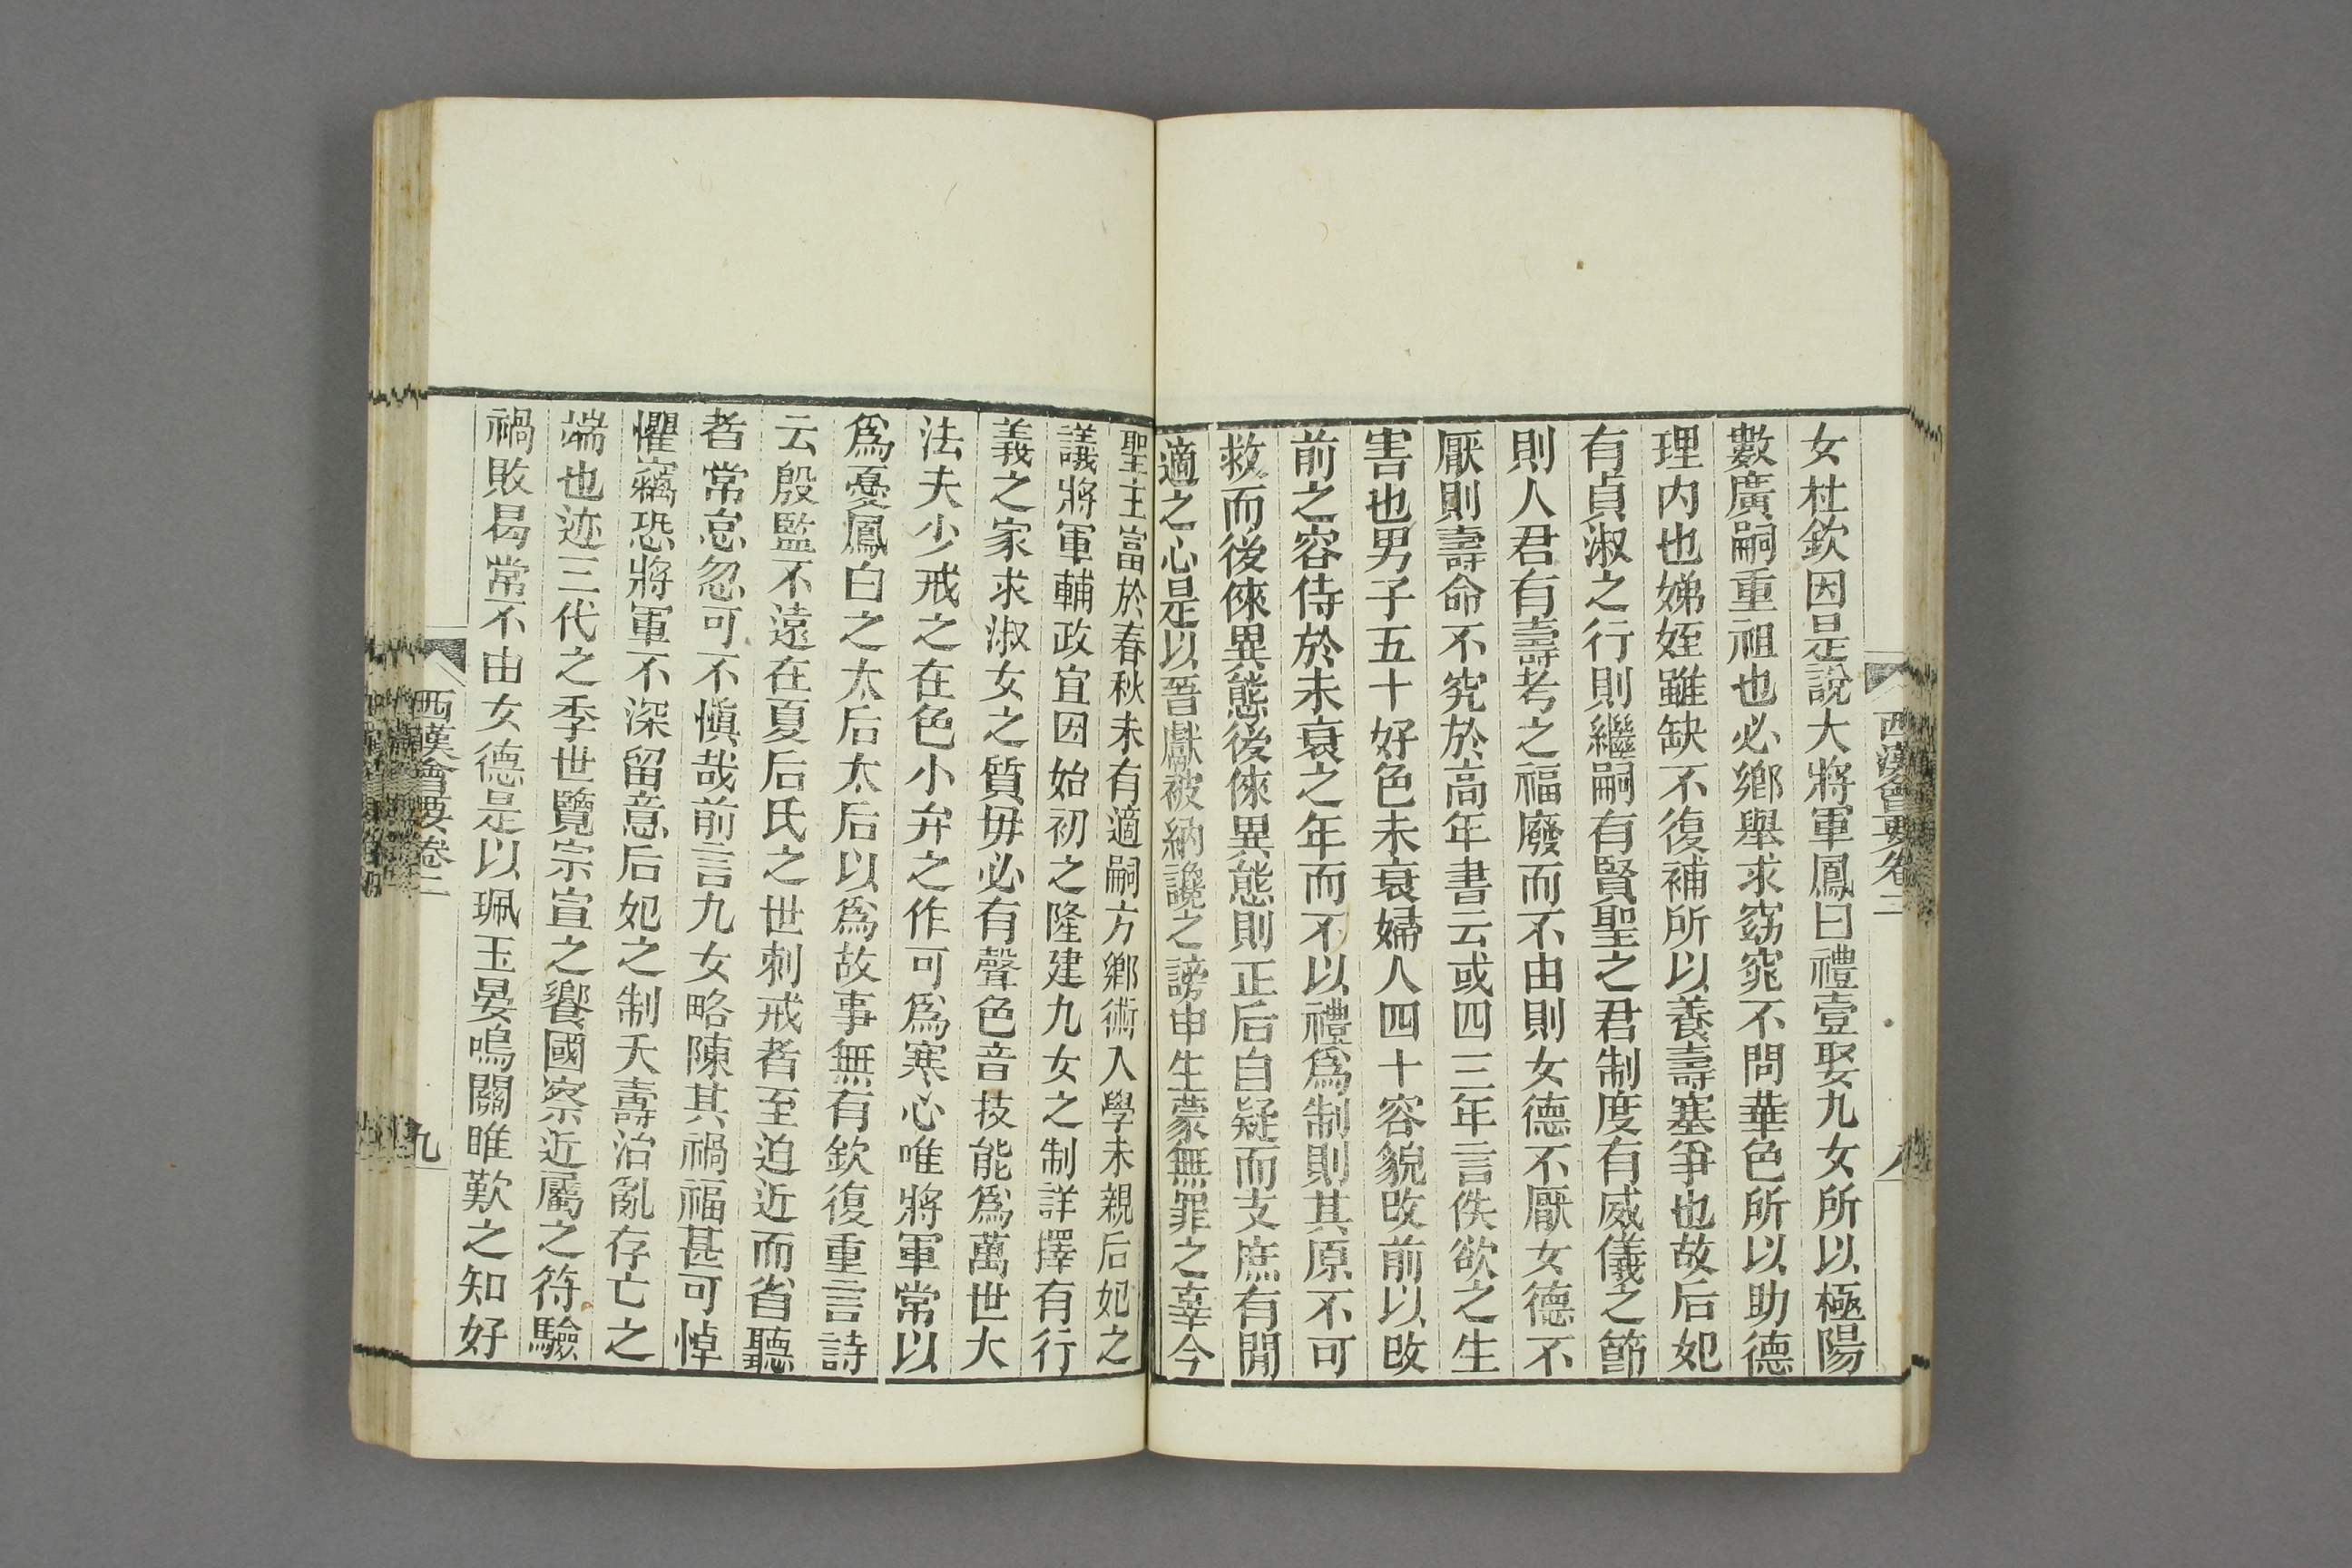 西漢會要卷二
女杜欽因是說大將軍鳳曰禮壹娶九女所以極陽
數廣嗣重祖也必鄉舉求窈窕不問華色所以助德
理内也娣姪雖缺不復補所以養壽塞爭也故后妃
有貞淑之行則繼嗣有賢聖之君制度有威儀之節
則人君有壽考之福廢而不由則女德不厭女德不
厭則壽命不究於高年書云或四三年言佚欲之生
害也男子五十好色未衰婦人四十容貌改前以改
前之容侍於未衰之年而不以禮爲制則其原不可
救而後倈異態後倈異態則正后自疑而支庶有閒
適之心是以晉獻被納讒之謗申生蒙無罪之辜今
聖主富於春秋未有適嗣方鄉術入學未親后妃之
議將軍輔政宜因始初之隆建九女之制詳擇有行
義之家求淑女之質毋必有聲色音技能爲萬世大
法夫少戒之在色小弁之作可爲寒心唯將軍常以
爲憂鳳白之太后太后以爲故事無有欽復重言詩
云殷監不遠在夏后氏之世刺戒者至迫近而省聽
者常怠忽可不愼哉前言九女略陳其禍福甚可悼
懼竊恐將軍不深留意后妃之制夭壽治亂存亡之
端也迹三代之季世覽宗宣之饗國察近屬之符驗
禍敗曷常不由女德是以珮玉晏鳴關睢歎之知好
西漢會要卷二
九